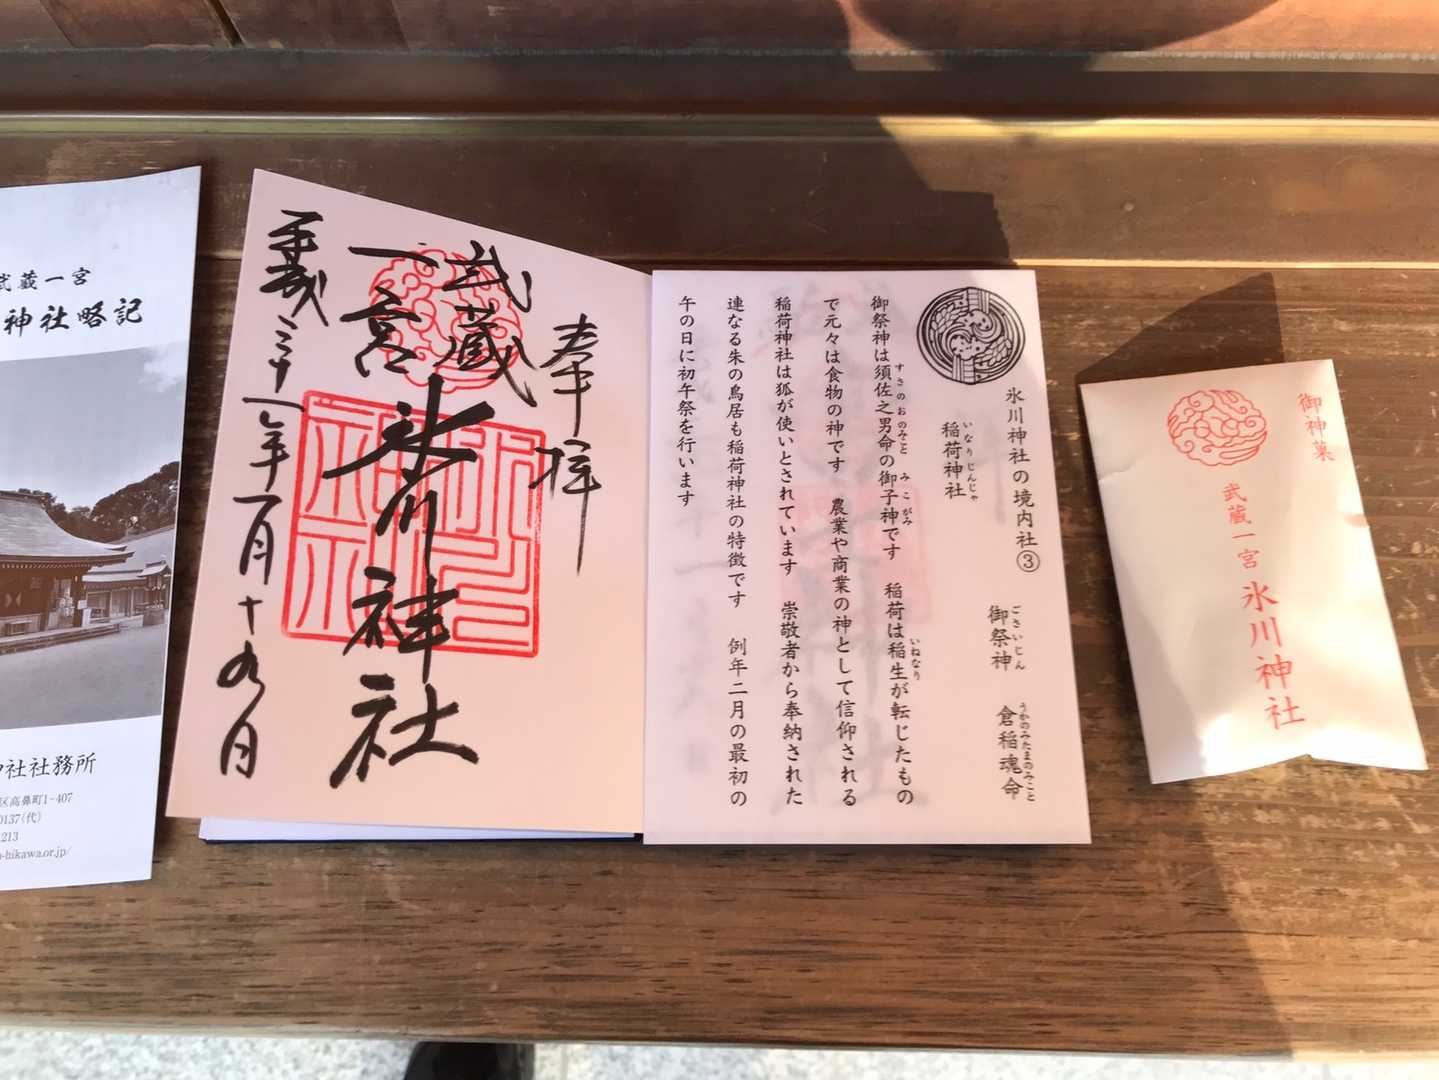 武蔵一宮
神社略記
社社務所
区高鼻町1-407
0137(代)
1213
-hikawa.or.jp/
奉拝
武蔵
一宮
氷川神社
平成三十一年一月十九日
氷川神社の境内社③
稲荷神社
いなりじんじゃ
御祭神 倉稲魂命
ごさいじん うかのみたまのみこと
御祭神は須佐之男命の御子神です 稲荷は稲生が転じたもの
すさのおのみこと みこがみ いねなり
で元々は食物の神です 農業や商業の神として信仰される
稲荷神社は狐が使いとされています 崇敬者から奉納された
連なる朱の鳥居も稲荷神社の特徴です 例年二月の最初の
午の日に初午祭を行います
御神菓
武蔵一宮 氷川神社